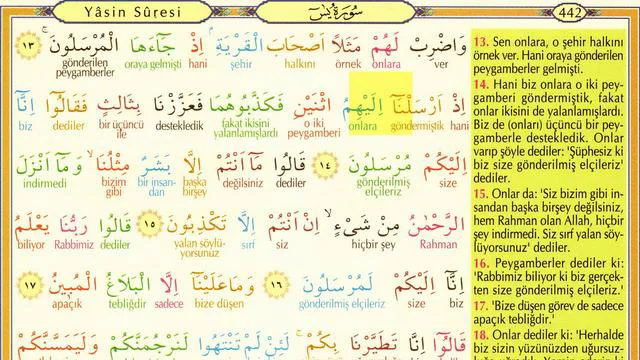 Yâsin Sûresi
سورة يس
442
وَاضْرِبْ لَهُمْ مَثَلًا اَصْحَابَ الْقَرْيَةِ اِذْ جَاءَهَا الْمُرْسَلُونَ ١٣
ver onlara örnek halkını şehir hani oraya gelmişti gönderilen peygamberler
اِذْ اَرْسَلْنَا اِلَيْهِمُ اثْنَيْنِ فَكَذَّبُوهُمَا فَعَزَّزْنَا بِثَالِثٍ فَقَالُوا اِنَّا
hani göndermiştik onlara o iki peygamberi fakat ikisini yalanlamışlardı destekledik bir üçüncü ile dediler biz
اِلَيْكُمْ مُرْسَلُونَ ١٤ قَالُوا مَا اَنْتُمْ اِلَّا بَشَرٌ مِثْلُنَا وَمَا اَنْزَلَ
size gönderilmiş elçileriz dediler değilsiniz başka birşey bir insandan bizim gibi indirmedi
الرَّحْمٰنُ مِنْ شَيْءٍ اِنْ اَنْتُمْ اِلَّا تَكْذِبُونَ ١٥ قَالُوا رَبُّنَا يَعْلَمُ
Rahman hiçbir şey siz sırf yalan söylüyorsunuz dediler Rabbimiz biliyor
اِنَّا اِلَيْكُمْ لَمُرْسَلُونَ ١٦ وَمَا عَلَيْنَا اِلَّا الْبَلَاغُ الْمُبِينُ ١٧
biz size gönderilmiş elçileriz bize düşen sadece tebliğdir apaçık
قَالُوا اِنَّا تَطَيَّرْنَا بِكُمْ لَئِنْ لَمْ تَنْتَهُوا لَنَرْجُمَنَّكُمْ وَلَيَمَسَّنَّكُمْ
13. Sen onlara, o şehir halkını
örnek ver. Hani oraya gönderilen
peygamberler gelmişti.
14. Hani biz onlara o iki pey-
gamberi göndermiştik, fakat
onlar ikisini de yalanlamışlardı.
Biz de (onları) üçüncü bir pey-
gamberle destekledik. Onlar
varıp şöyle dediler: 'Şüphesiz ki
biz size gönderilmiş elçileriz'
dediler.
15. Onlar da: 'Siz bizim gibi in-
sandan başka birşey değilsiniz,
hem Rahman olan Allah, hiçbir
şey indirmedi. Siz sırf yalan söy-
lüyorsunuz' dediler.
16. Peygamberler dediler ki:
'Rabbimiz biliyor ki biz gerçek-
ten size gönderilmiş elçileriz.
17. 'Bize düşen görev de sadece
apaçık tebliğdir.'
18. Onlar dediler ki: 'Herhalde
biz sizin yüzünüzden uğursuz-